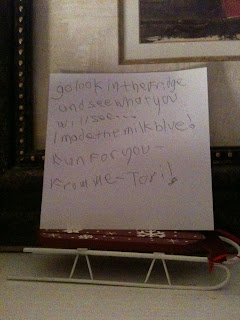 go look in the fridge
and see what you
will see...
I made the milk blue!
Run For you -
From me - Tori!